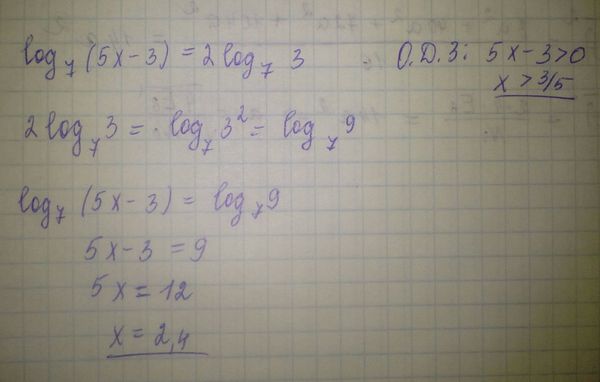 log₇ (5x-3) = 2log₇ 3
О.Д.З: 5x-3>0
x > 3/5
2log₇3 = log₇3² = log₇9
log₇ (5x-3) = log₇9
5x-3 = 9
5x = 12
x = 2,4